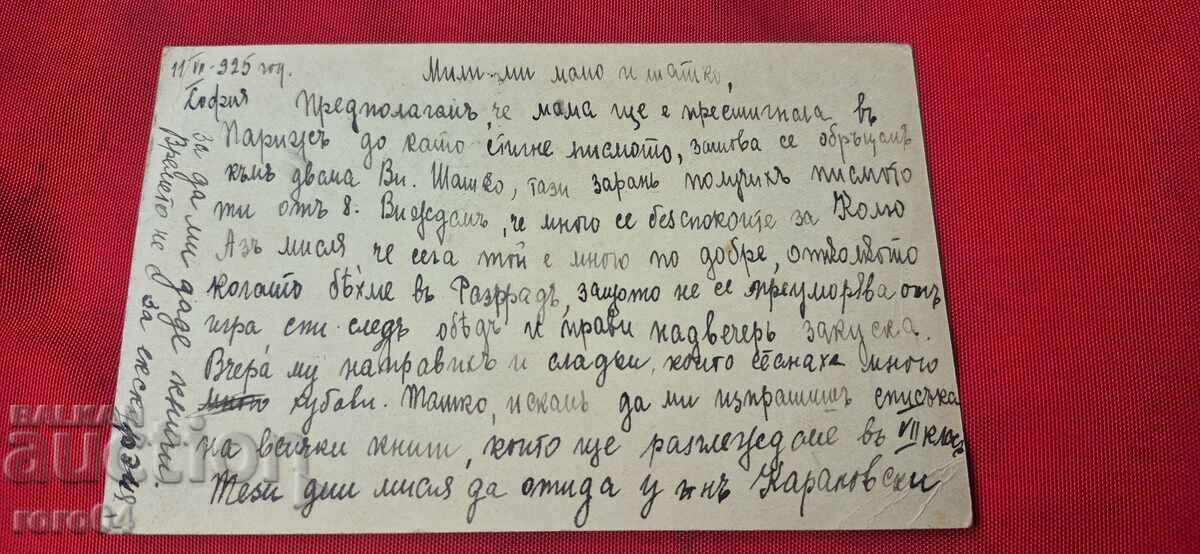 11 VII - 925 год.
София
Мили ми мамо и татко,
Предполагамъ, че мама ще е пристигнала въ
Парижъ до като стигне писмото, затова се обръщамъ
къмъ двама Ви. Татко, тази зарань получихъ писмото
ти отъ 8. Виждамъ, че много се беспокоите за Колю
Азъ мисля че сега той е много по добре, отколкото
когато бѣхме въ Разградъ, защото не се преуморява отъ
игра, спи следъ обѣдъ и прави надвечерь закуска.
Вчера му направихъ и сладки, които станаха много
хубави. Татко, искамъ да ми изпратишъ списъка
на всички книги, които ще разглеждаме въ VII класъ
Тези дни мисля да отида у г-нъ Караковски
за да ми даде книги.
Времето не за екскурзия
BALKAN
auction
roro64